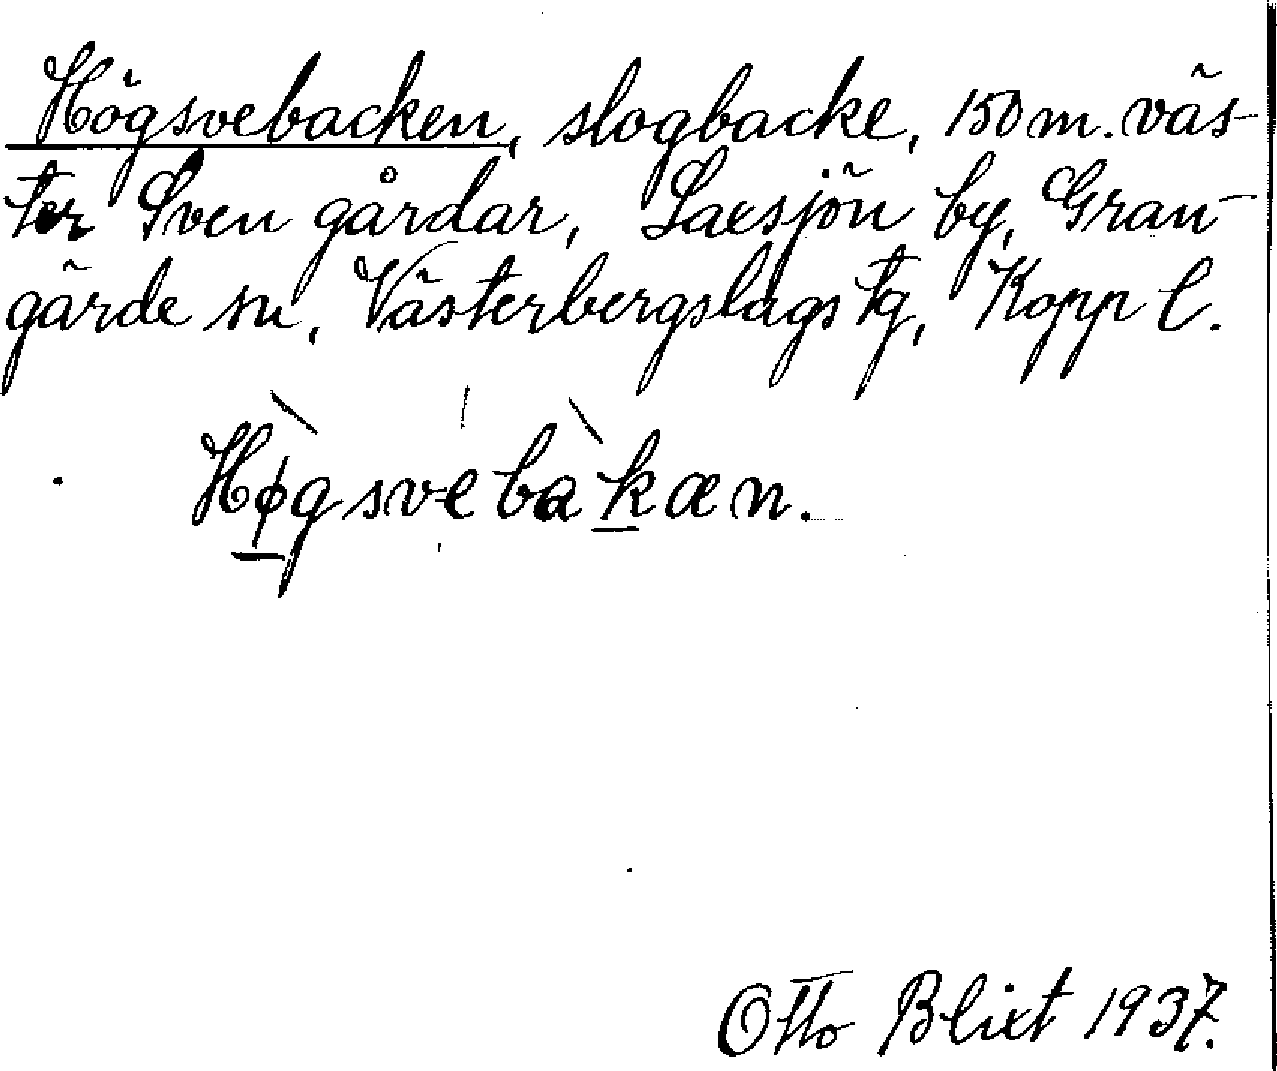 Högsvebacken, slogbacke, 150 m. väs-
ter Sven gårdar, Laxsjön by, Gran-
gärde sn, Västerbergslags tg, Kopp l.
Høgsvebakæn.
Otto Blixt 1937.